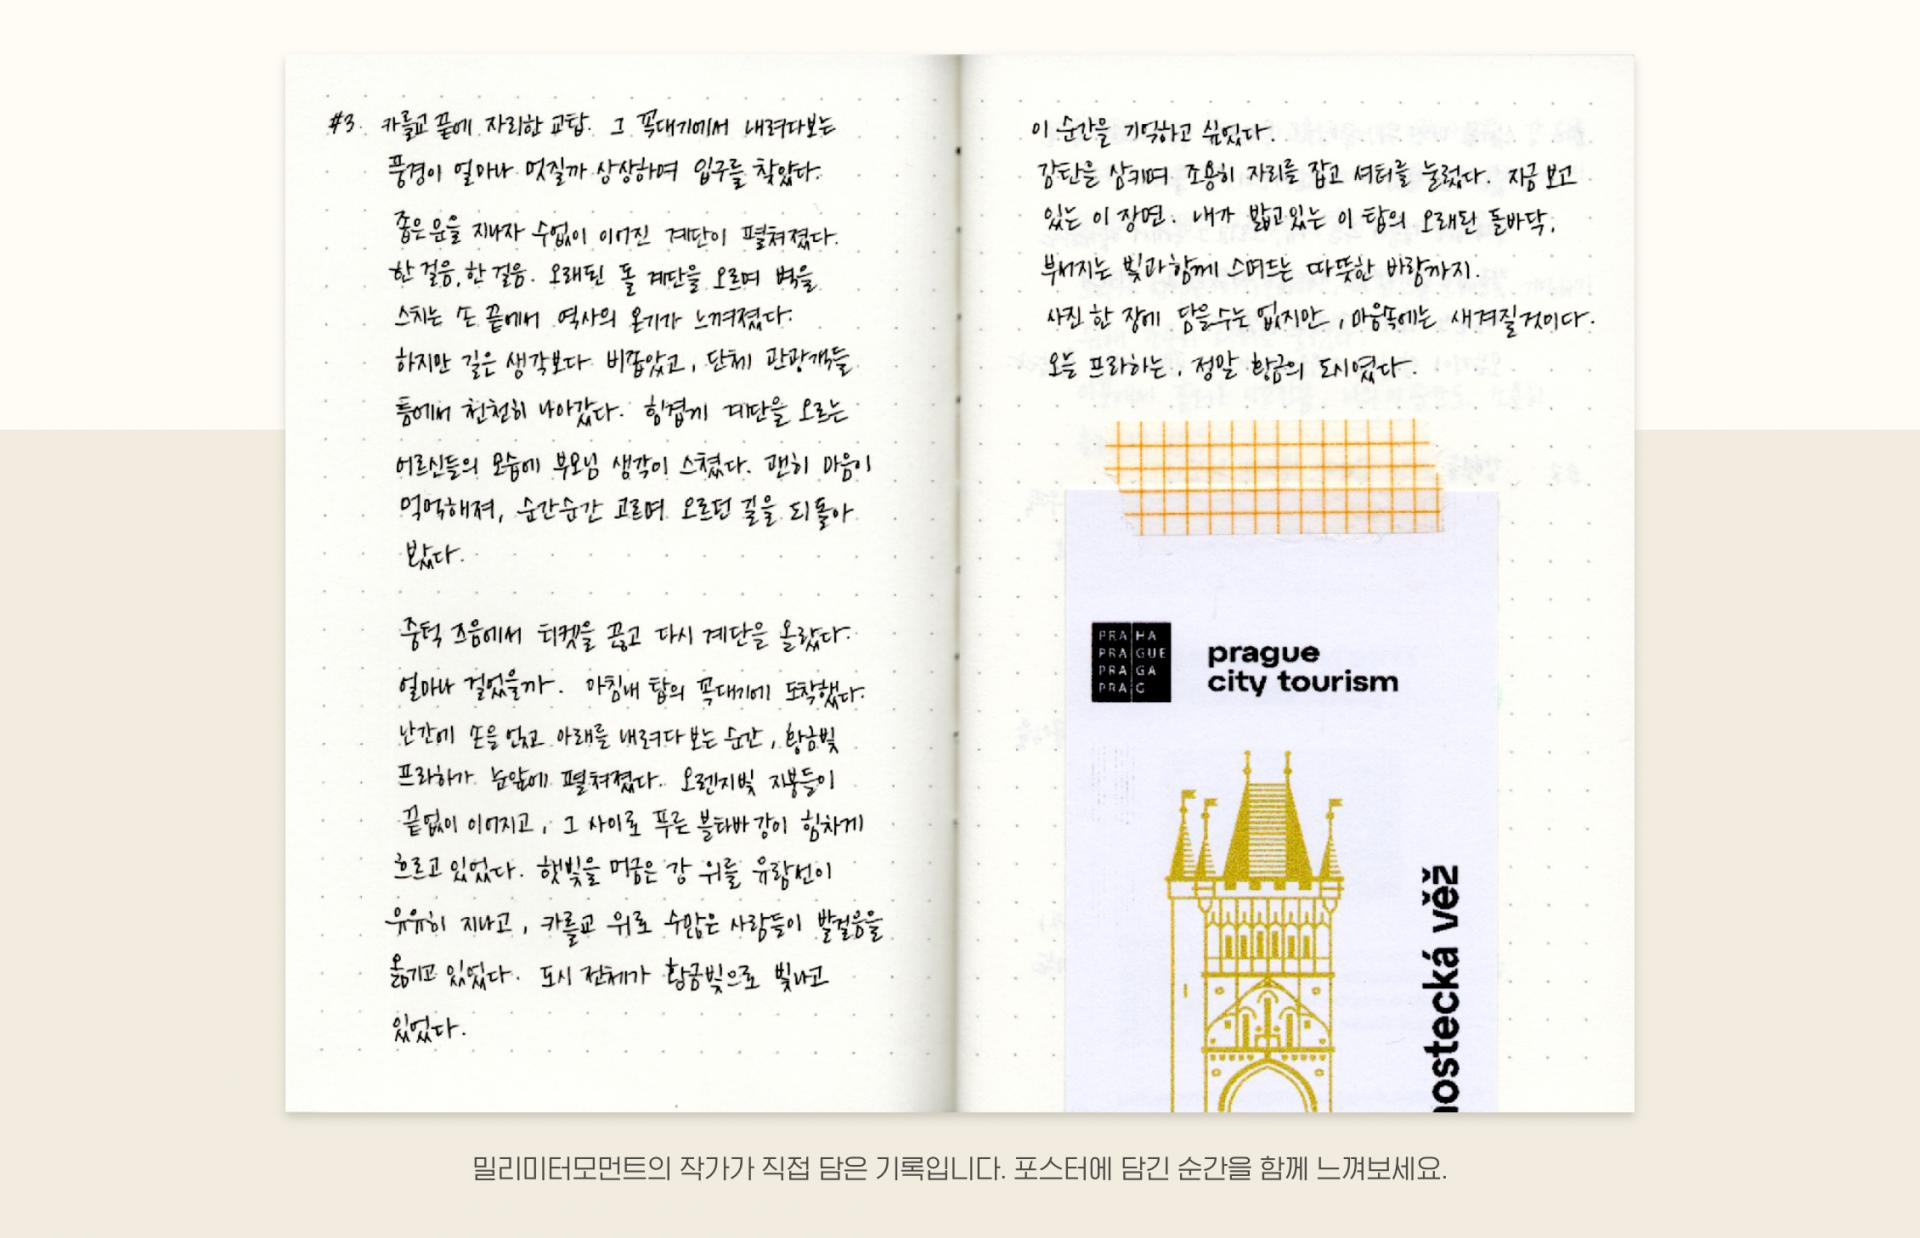 #3. 카를교 끝에 자리한 교탑. 그 꼭대기에서 내려다보는
풍경이 얼마나 멋질까 상상하며 입구를 찾았다.
좁은 문을 지나자 수없이 이어진 계단이 펼쳐졌다.
한 걸음, 한 걸음. 오래된 돌 계단을 오르며 벽을
스치는 손 끝에서 역사의 온기가 느껴졌다.
하지만 길은 생각보다 비좁았고, 단체 관광객들
틈에서 천천히 나아갔다. 힘겹게 계단을 오르는
어르신들의 모습에 부모님 생각이 스쳤다. 괜히 마음이
먹먹해져, 순간순간 고르며 오르던 길을 되돌아
봤다.
중턱 즈음에서 티켓을 끊고 다시 계단을 올랐다.
얼마나 걸었을까. 마침내 탑의 꼭대기에 도착했다.
난간에 손을 얹고 아래를 내려다 보는 순간, 황금빛
프라하가 눈앞에 펼쳐졌다. 오렌지빛 지붕들이
끝없이 이어지고, 그 사이로 푸른 블타바 강이 힘차게
흐르고 있었다. 햇빛을 머금은 강 위를 유람선이
유유히 지나고, 카를교 위로 수많은 사람들이 발걸음을
옮기고 있었다. 도시 전체가 황금빛으로 빛나고
있었다.
이 순간을 기억하고 싶었다.
감탄을 삼키며 조용히 자리를 잡고 셔터를 눌렀다. 지금 보고
있는 이 장면. 내가 밟고있는 이 탑의 오래된 돌바닥,
부서지는 빛과 함께 스며드는 따뜻한 바람까지.
사진 한 장에 담을수는 없지만, 마음속에는 새겨질것이다.
오늘 프라하는, 정말 황금의 도시였다.
PRA HA
PRA GUE
PRA GA
PRA G
prague
city tourism
mostecká věž
밀리미터모먼트의 작가가 직접 담은 기록입니다. 포스터에 담긴 순간을 함께 느껴보세요.